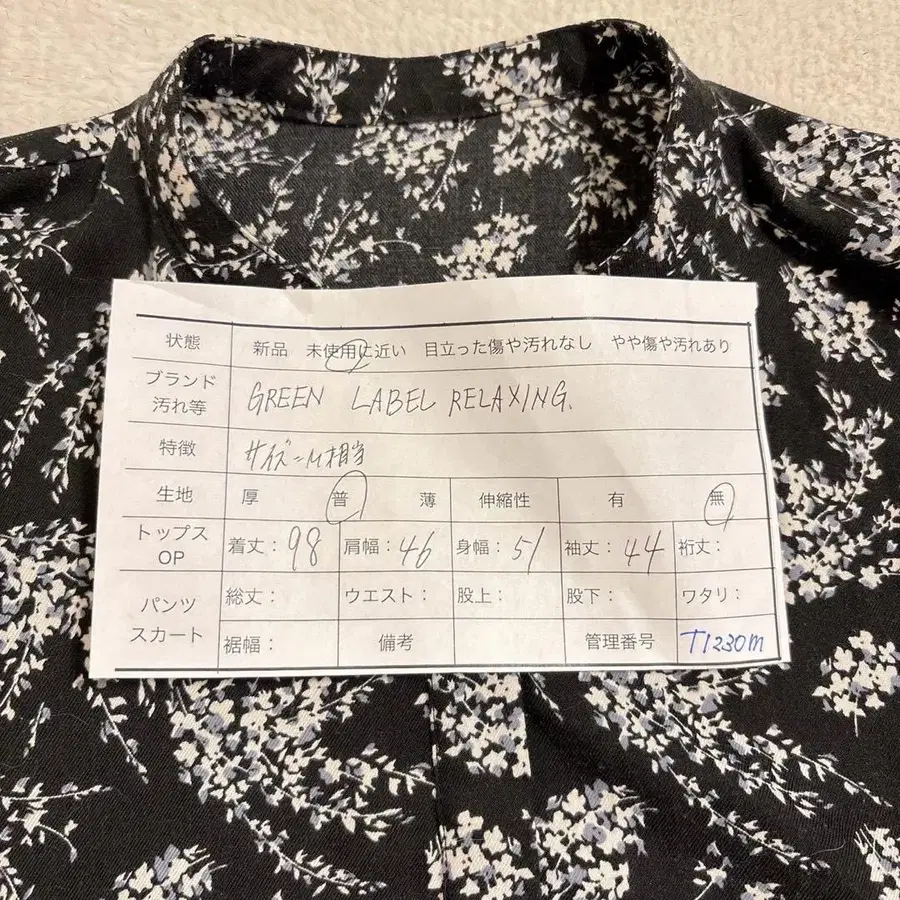 状態 新品 未使用に近い 目立った傷や汚れなし やや傷や汚れあり
ブランド
汚れ等 GREEN LABEL RELAXING.
特徴 サイズ=M相当
生地 厚 普 薄 伸縮性 有 無
トップス
OP 着丈：98 肩幅：46 身幅：51 袖丈：44 裄丈：
パンツ
スカート
総丈： ウエスト： 股上： 股下： ワタリ：
裾幅： 備考 管理番号 T1230m